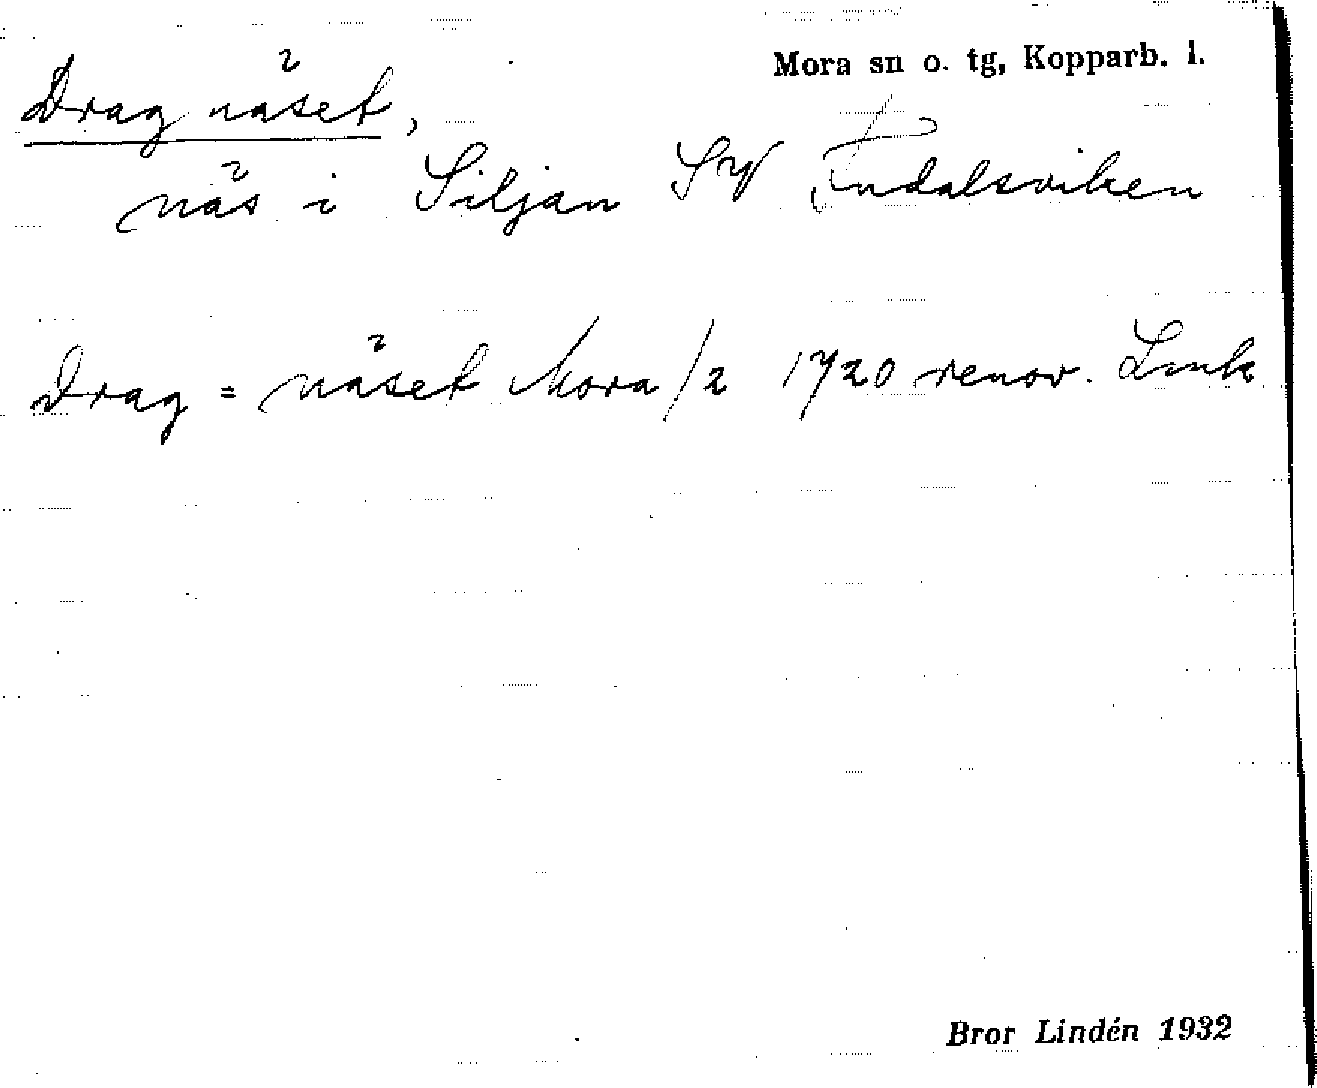 Mora sn o. tg, Kopparb. l.
Dragnäset,
näs i Siljan SV Findalsviken
Drag=näset Mora/2 1720 renov. Lmk
Bror Lindén 1932